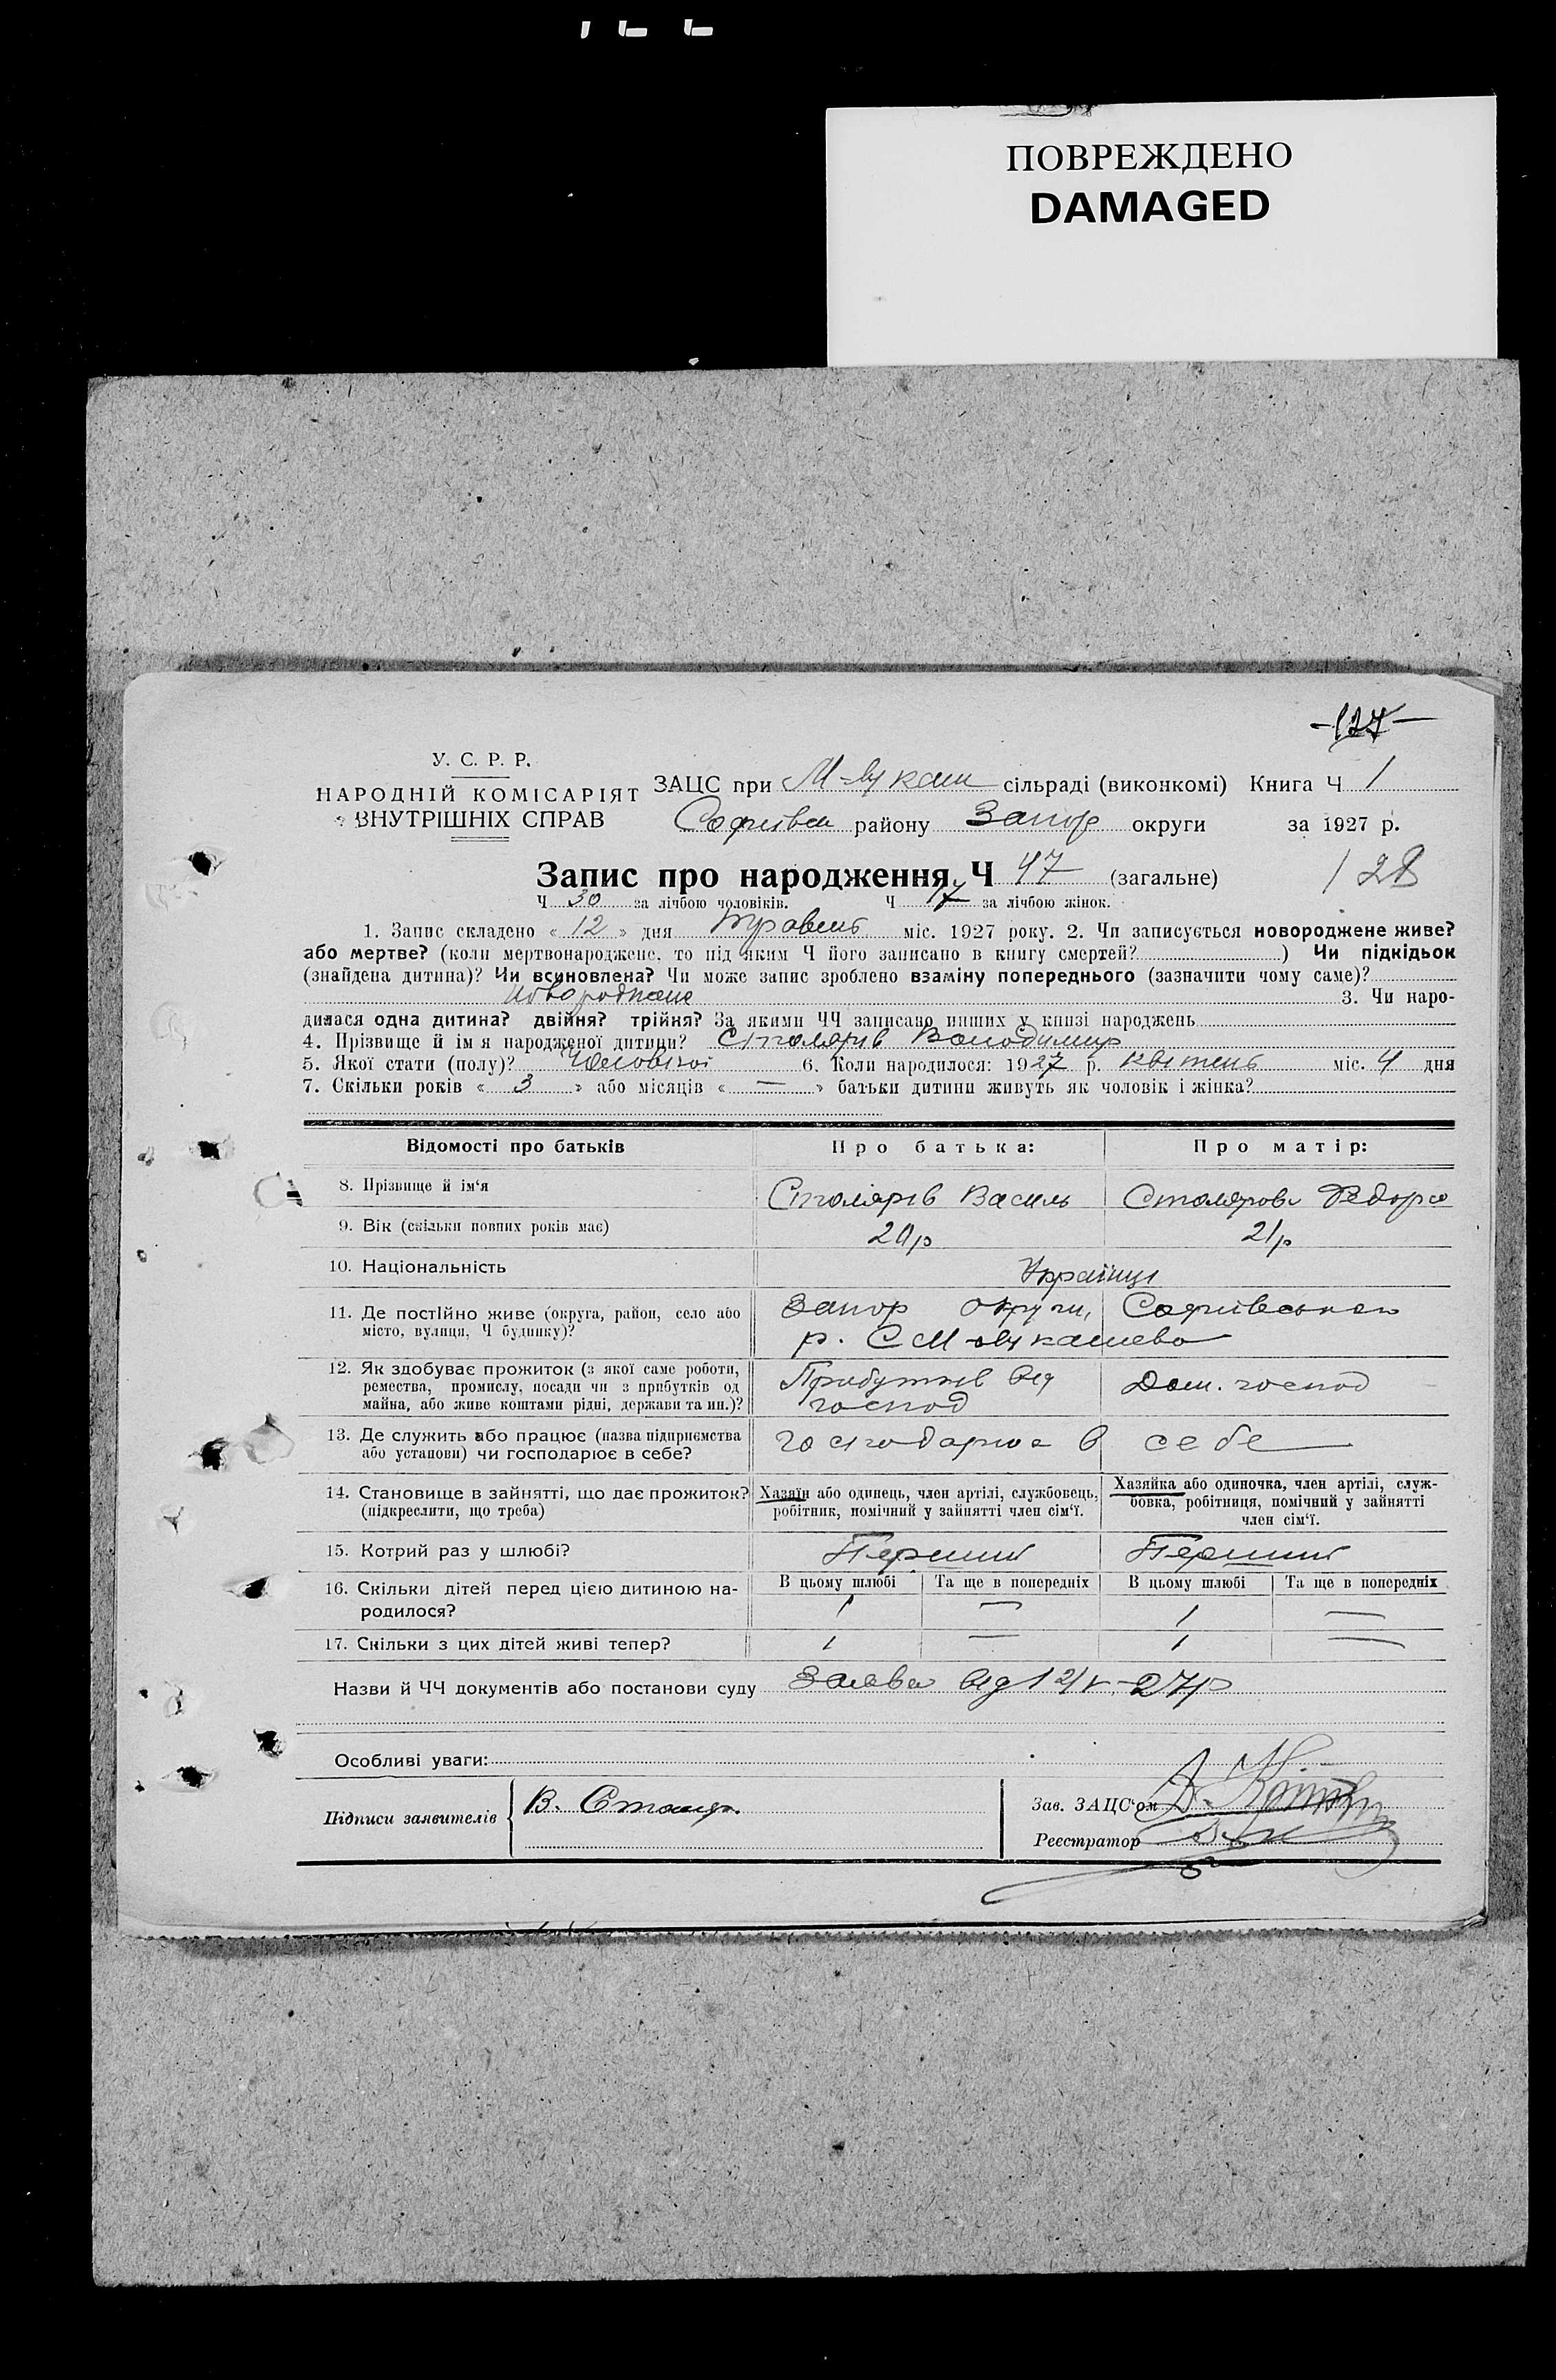 ПОВРЕЖДЕНО
DAMAGED
-127-
У. С. Р. Р.
НАРОДНІЙ КОМІСАРІЯТ
ВНУТРІШНІХ СПРАВ
ЗАЦС при М-Лукаш сільраді (виконкомі) Книга Ч 1
Софиівск району Запор округи за 1927 р.
Запис про народження Ч 47 (загальне) 128
Ч 30 за лічбою чоловіків. Ч 17 за лічбою жінок.
1. Запис складено « 12 » дня Травень міс. 1927 року. 2. Чи записується новороджене живе?
або мертве? (коли мертвонароджене, то під яким Ч його записано в книгу смертей? ) Чи підкідьок
(знайдена дитина)? Чи всиновлена? Чи може запис зроблено взаміну попереднього (зазначити чому саме)?
новороджене 3. Чи наро-
дилася одна дитина? двійня? трійня? За якими ЧЧ записано инших у книзі народжень
4. Прізвище й ім я народженої дитини? Столярів Володимир
5. Якої стати (полу)? Чоловічої 6. Коли народилося: 1927 р. Квітень міс. 4 дня
7. Скільки років « 3 » або місяців « — » батьки дитини живуть як чоловік і жінка?
Відомості про батьків Про батька: Про матір:
8. Прізвище й ім‘я Столярів Василь Столярова Федора
9. Вік (скільки повних років має) 20р 21р
10. Національність Українці
11. Де постійно живе (округа, район, село або Запор округи, Софиівського
місто, вулиця, Ч будинку)? р. С М-Лукашево
12. Як здобуває прожиток (з якої саме роботи, Прибутків від Дом. господ
ремества, промислу, посади чи з прибутків од господ
майна, або живе коштами рідні, держави та ин.)?
13. Де служить або працює (назва підприємства господарює в себе
або установи) чи господарює в себе?
14. Становище в зайнятті, що дає прожиток? Хазяїн або одинець, член артілі, службовець, Хазяйка або одиночка, член артілі, служ-
(підкреслити, що треба) робітник, помічний у зайнятті член сім‘ї. бовка, робітниця, помічний у зайнятті
член сім‘ї.
15. Котрий раз у шлюбі? Перший Перший
16. Скільки дітей перед цією дитиною на- В цьому шлюбі Та ще в попередніх В цьому шлюбі Та ще в попередніх
родилося? 1 — 1 —
17. Скільки з цих дітей живі тепер? 1 — 1 —
Назви й ЧЧ документів або постанови суду Заява від 12/V-27р
Особливі уваги:
Підписи заявителів В. Столяр. Зав. ЗАЦС‘ом
Реєстратор